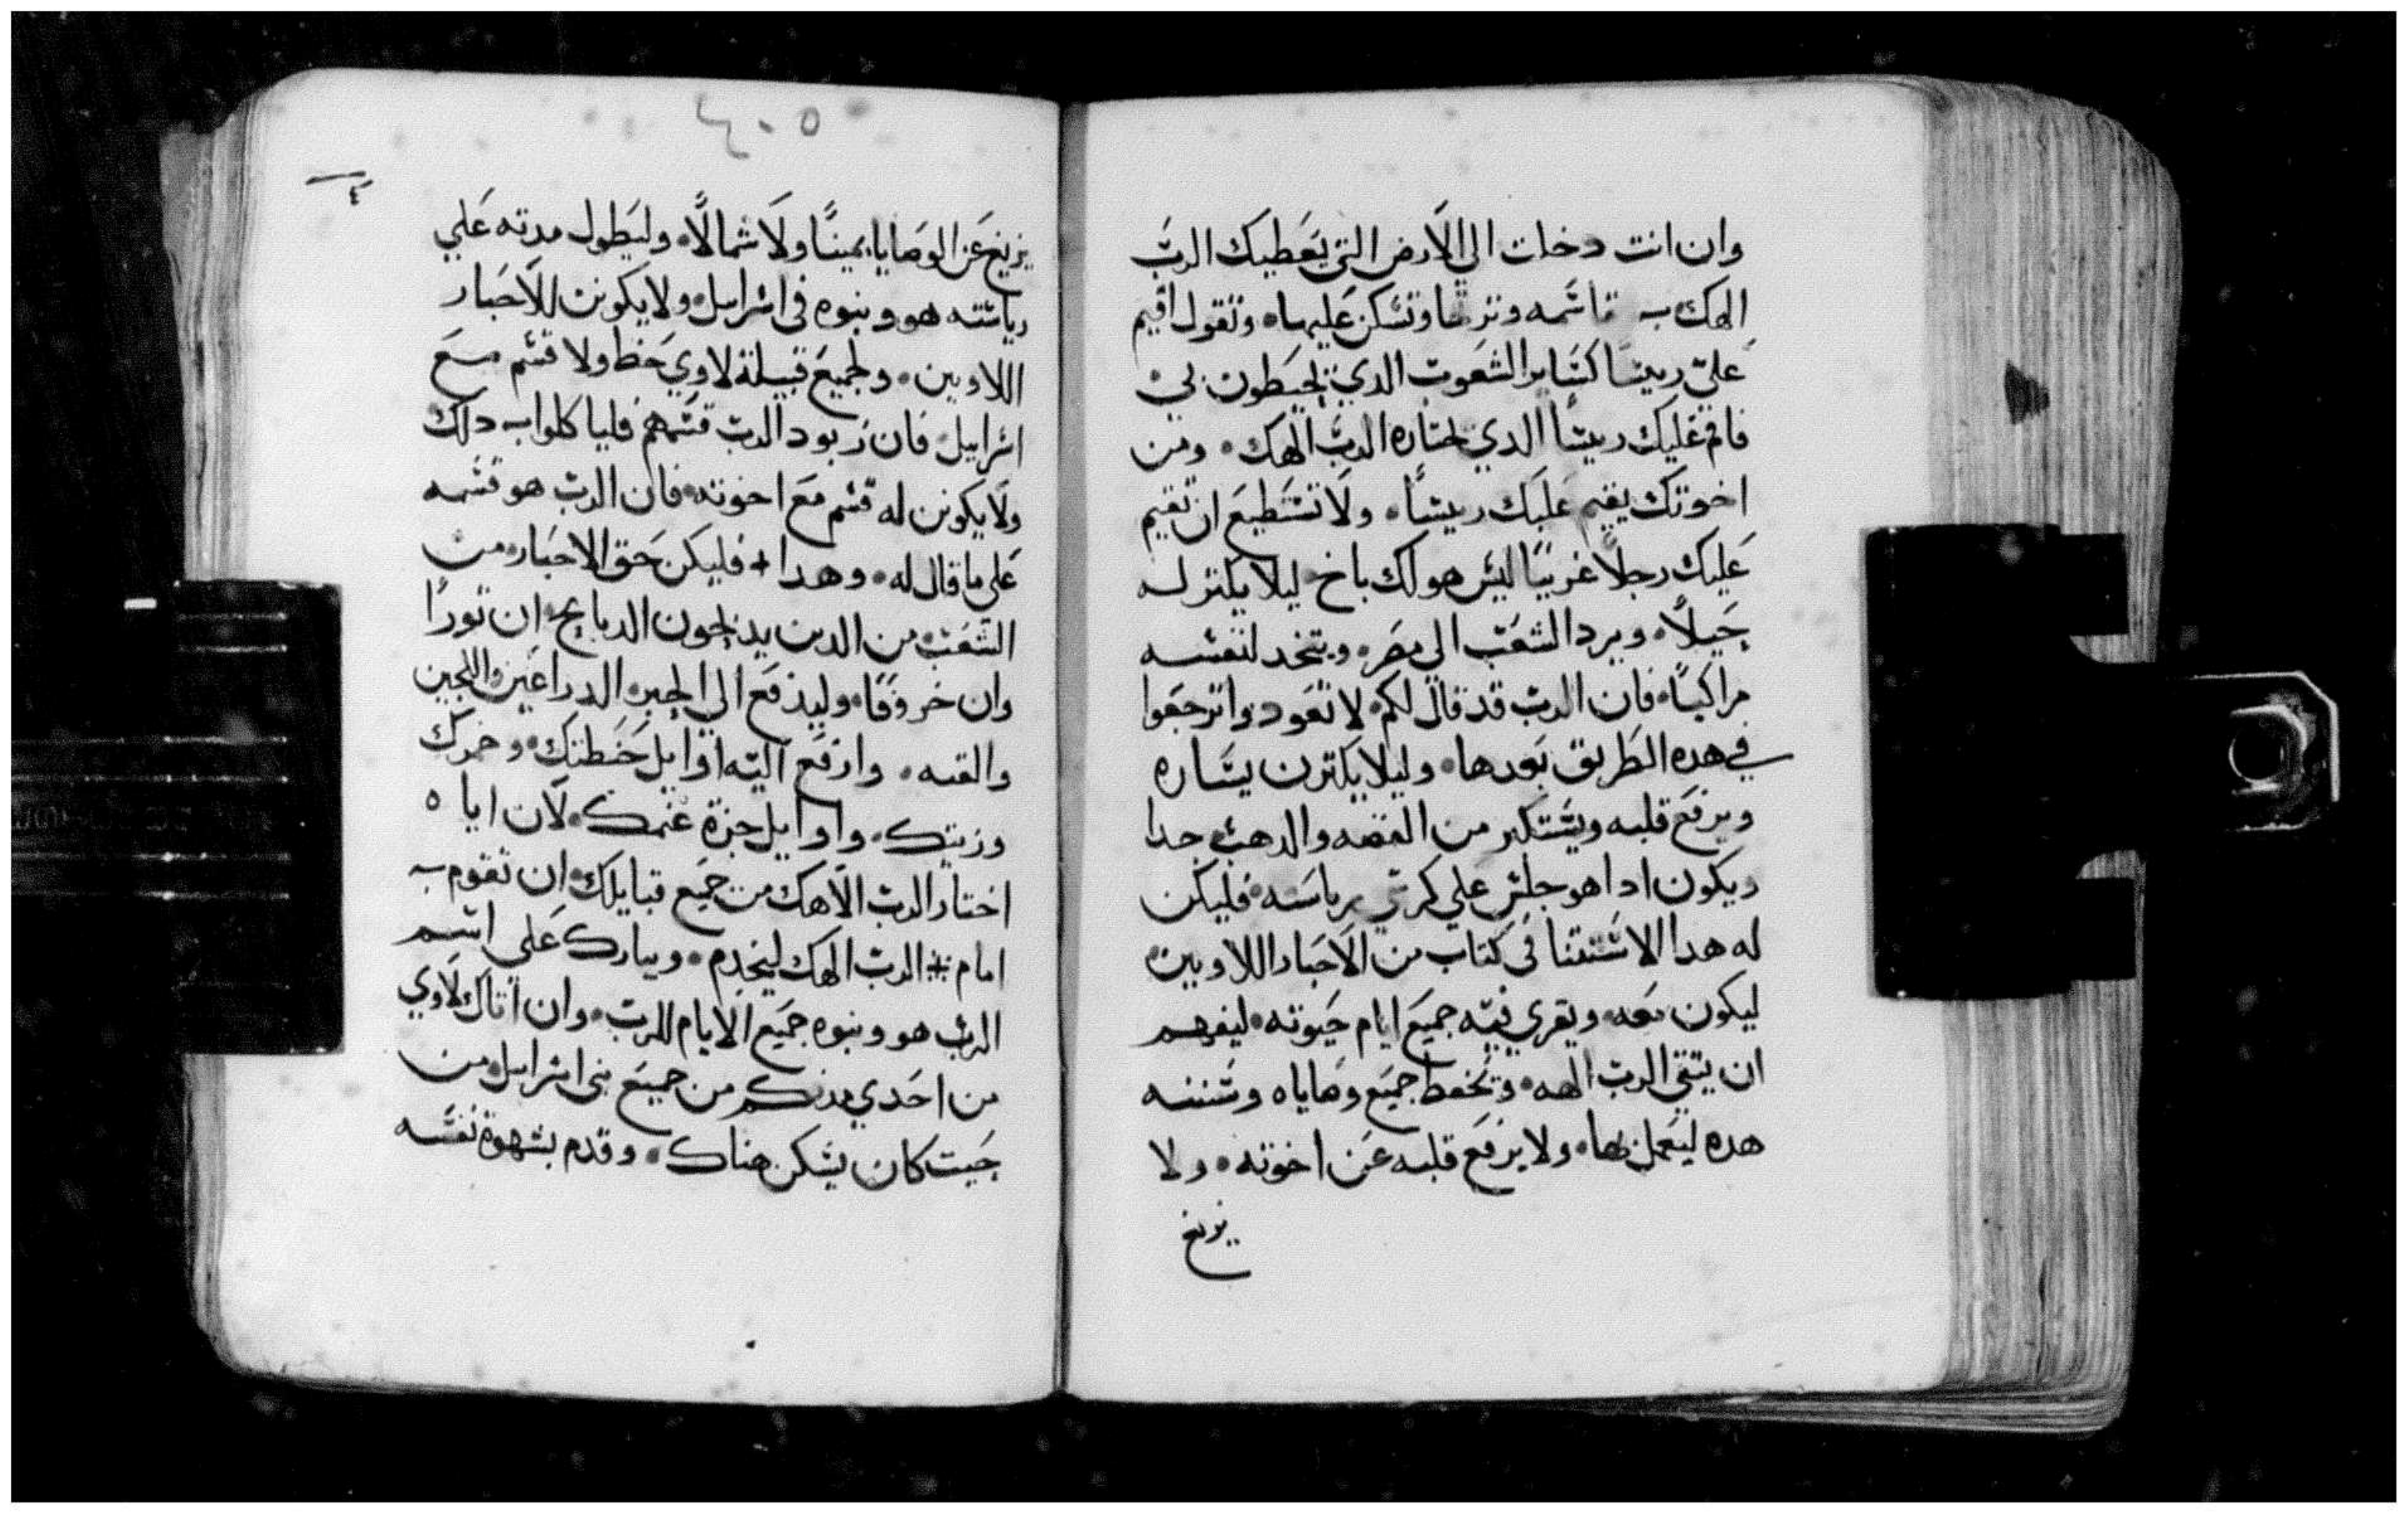 وان انت دخلت الي الارض التي يعطيك الرب
الهك به قاسمه وترتها وتسكن عليها. وتقول اقيم
علي ريسا كساير الشعوب الدي يحيطون بي
فاقم عليك ريسا الدي يختاره الرب الهك. ومن
اخوتك يقيم عليك ريسا. ولا تستطيع ان تقيم
عليك رجلا غريبا ليس هو لك باخ. ليلا يكتر له
خيلا. ويرد الشعب الي مصر. ويتخد لنفسه
مراكبا. فان الرب قد قال لكم. لا تعودوا ترجعوا
في هده الطريق بعدها. وليلا يكترن يساره
ويرفع قلبه ويستكبر من الفضه والدهب جدا
ويكون ادا هو جلس علي كرسي برياسته. فليكن
له هدا الاستتنا في كتاب من الاحبار اللاويين
ليكون معه. ويقري فيه جميع ايام حيوته. ليفهم
ان يتقي الرب الهه. وتحفظ جميع وصاياه وسننه
هده ليعمل بها. ولا يرفع قلبه عن اخوته. ولا
يزيغ
٤٠٥
٤
يزيغ عن الوصايا يمينا ولا شمالا. وليطول مدته علي
رياسته هو وبنوه في اسراييل. ولا يكونن للاحبار
اللاويين. ولجميع قبيلة لاوي حظ ولا قسم مع
اسراييل. فان زبود الرب قسمهم فلياكلوا به دلك
ولا يكونن له قسم مع اخوته. فان الرب هو قسمه
علي ما قال له. وهدا + فليكن حق الاحبار. من
الشعب من الدين يدبحون الدبايح. ان تورا
وان خروفا. وليدفع الي الحبر. الدراعين واللحيين
والقبه. وادفع اليه اوايل حنطتك. وخمرك
وزيتك. واوايل جزة غنمك. لان اياه
اختار الرب الاهك من جميع قبايلك. ان تقوم به
امام الرب الهك ليخدم. ويبارك علي اسم
الرب هو وبنوه جميع الايام للرب. وان اتاك لاوي
من احدي مدنكم من جميع بني اسراييل. من
حيت كان يسكن هناك. وقدم بشهوة نفسه